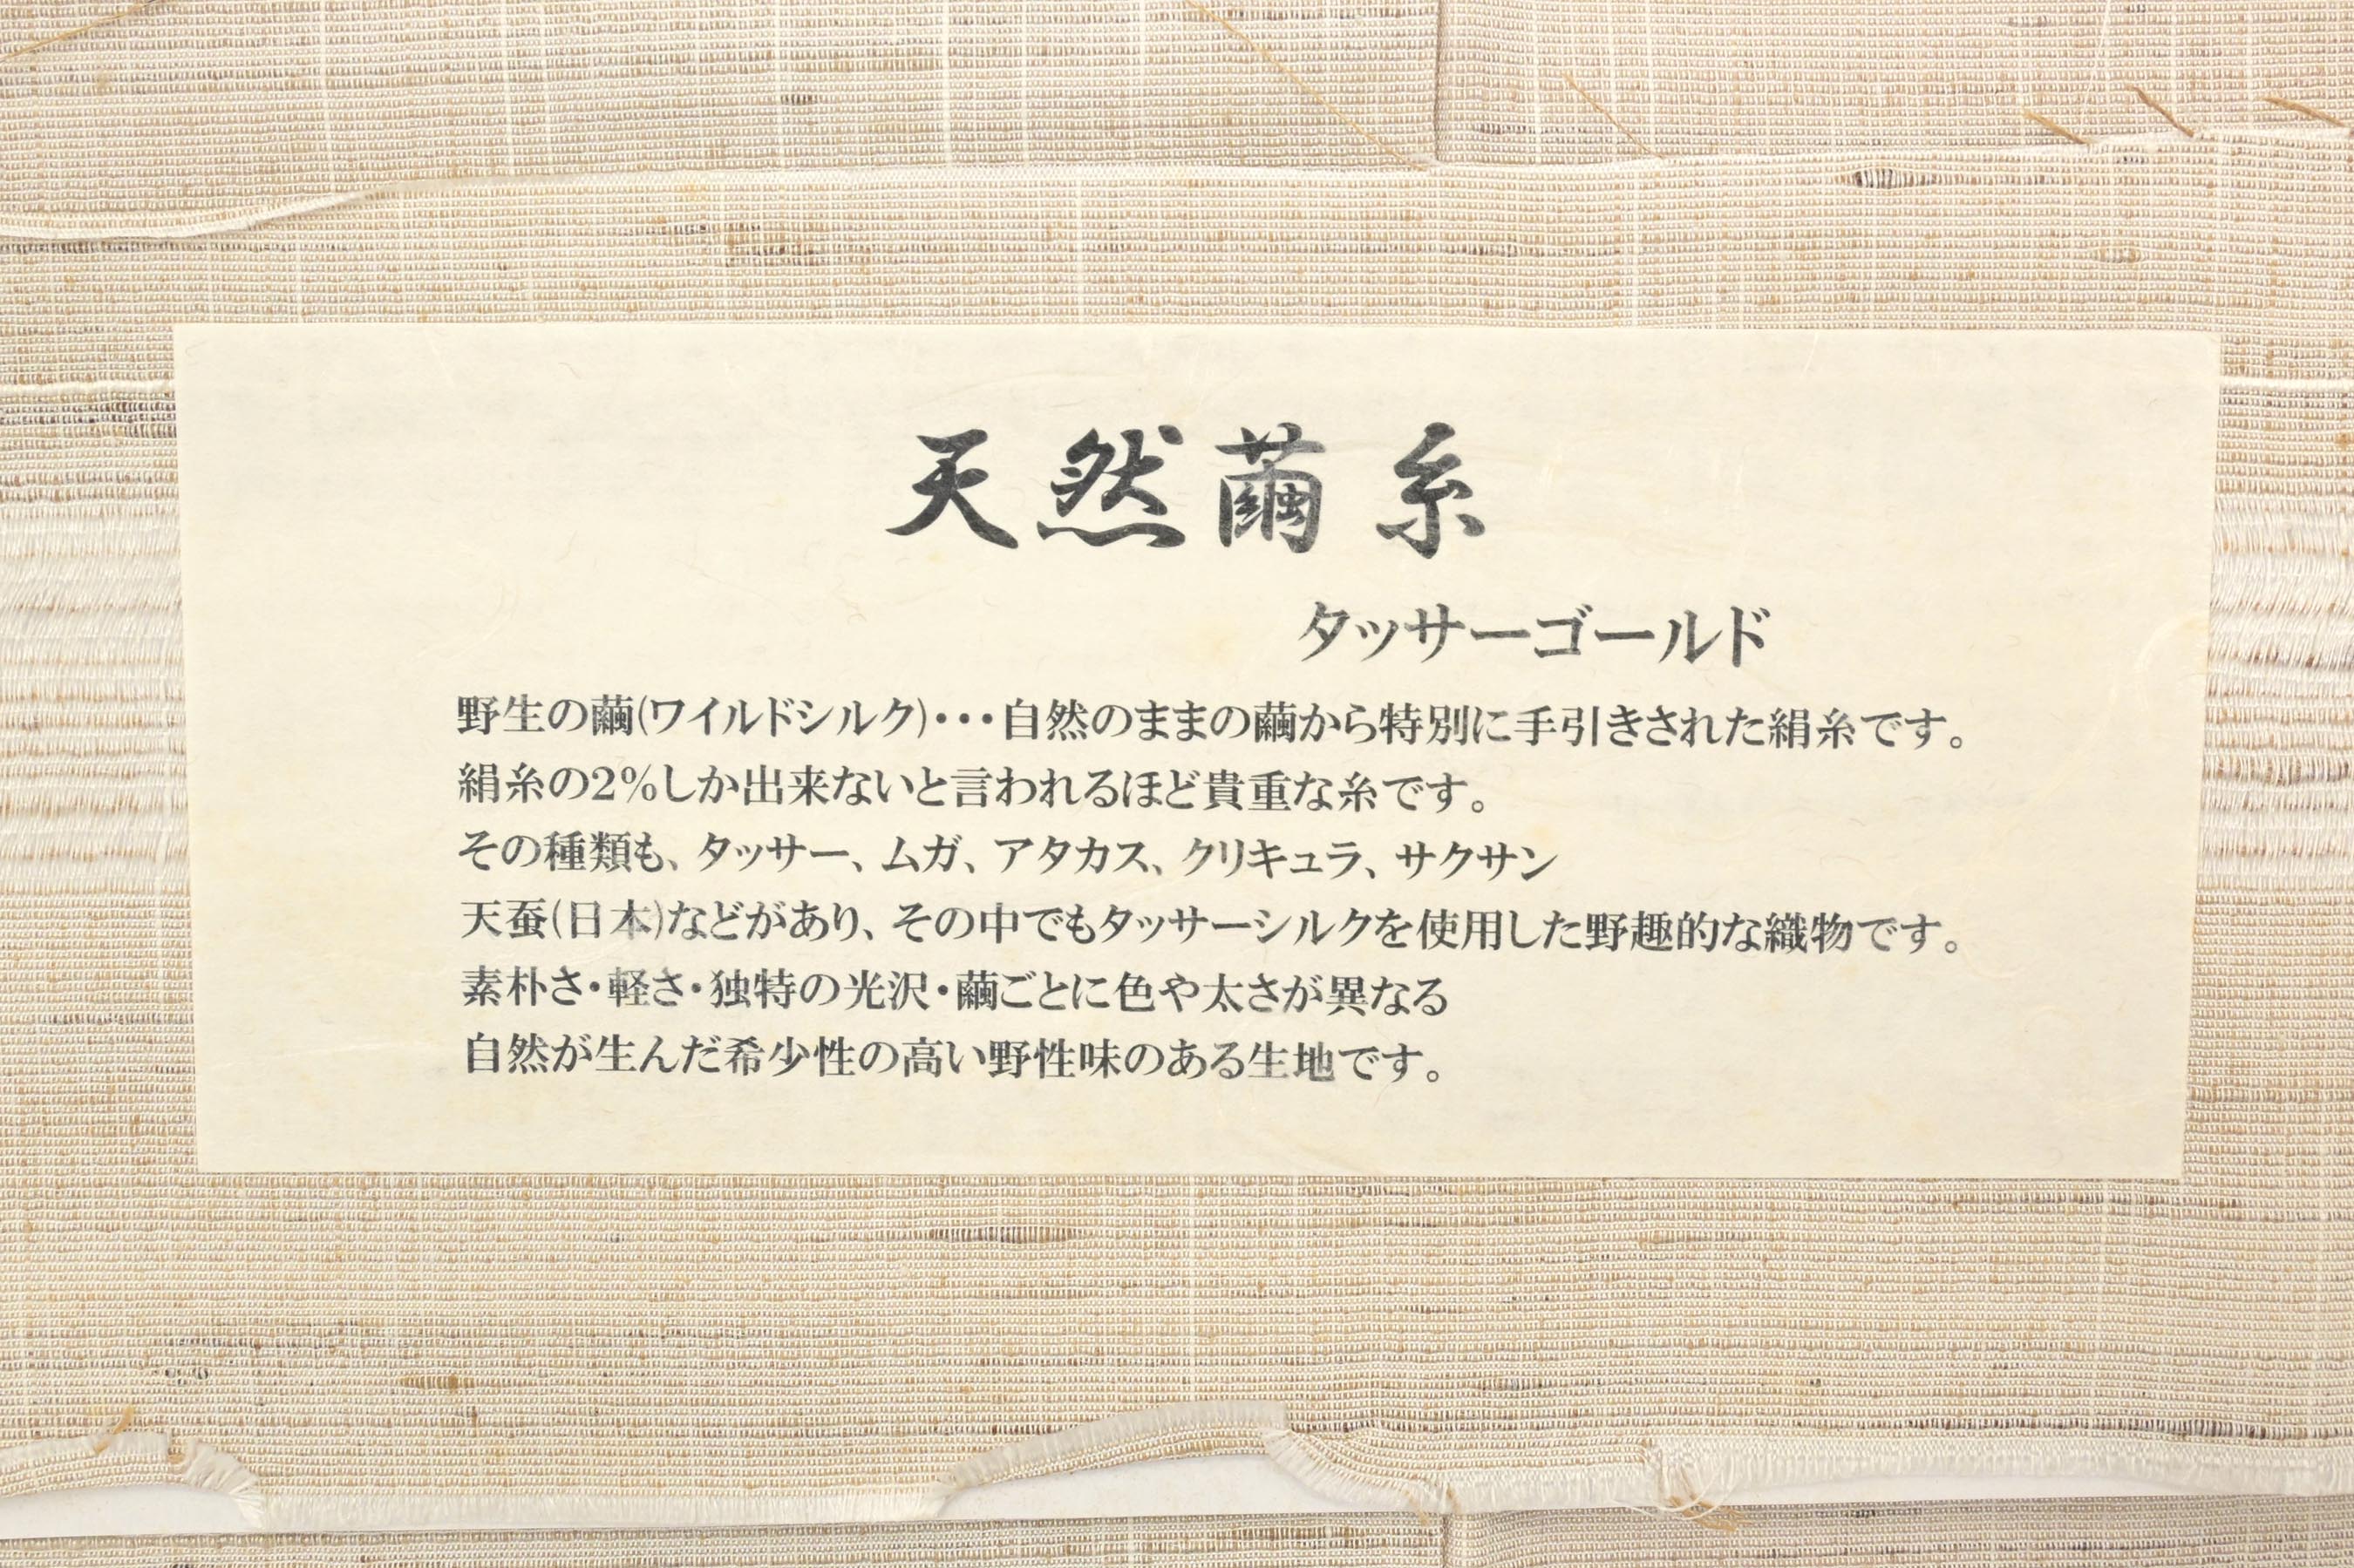 天然繭糸
タッサーゴールド
野生の繭(ワイルドシルク)・・・自然のままの繭から特別に手引きされた絹糸です。
絹糸の2%しか出来ないと言われるほど貴重な糸です。
その種類も、タッサー、ムガ、アタカス、クリキュラ、サクサン
天蚕(日本)などがあり、その中でもタッサーシルクを使用した野趣的な織物です。
素朴さ・軽さ・独特の光沢・繭ごとに色や太さが異なる
自然が生んだ希少性の高い野性味のある生地です。